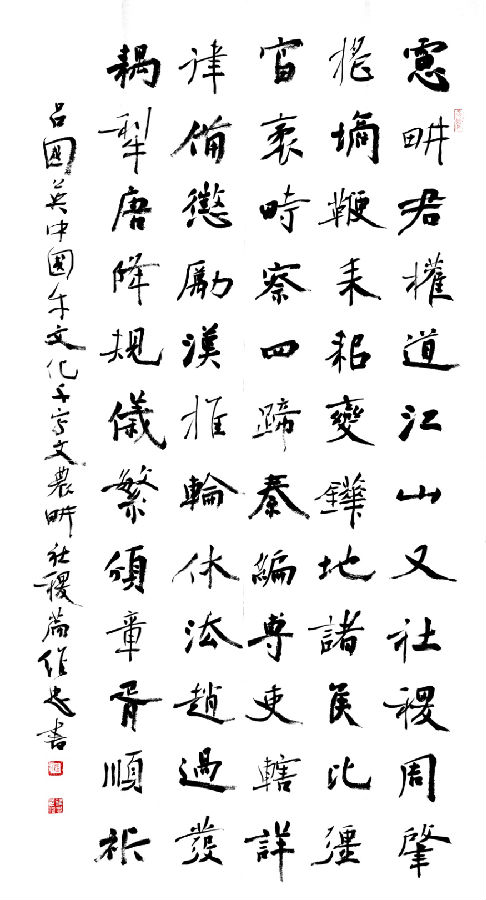 憲畊君權道江山又社稷周肇
墒鞭耒耜變鏵地諸侯比疆
富時察四蹄秦編專吏轄詳
律備懲勵漢推輪休法趙過發
耦犁唐降規儀繁頒章胥順
呂國英中國牛文化千字文農畊社稷篇維忠書